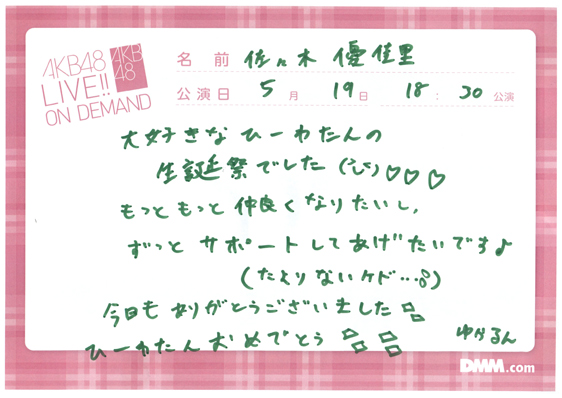 AKB48
LIVE!!
ON DEMAND
AKB
48
名前 佐々木 優佳里
公演日 5月 19日 18:30公演
大好きなひーわたんの
生誕祭でした(¨̮)♡♡♡
もっともっと仲良くなりたいし、
ずっとサポートしてあげたいですよ
(たよりないケド…。)
今日もありがとうございました
ひーわたんおめでとう
ゆかるん
DMM.com